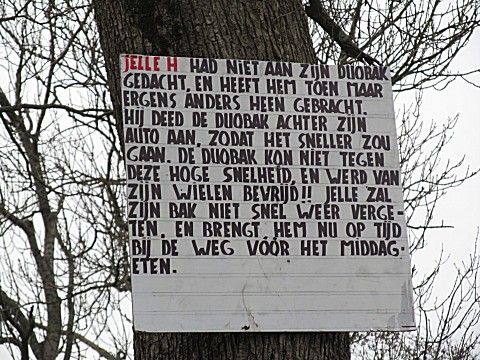 JELLE H HAD NIET AAN ZIJN DUOBAK
GEDACHT, EN HEEFT HEM TOEN MAAR
ERGENS ANDERS HEEN GEBRACHT.
HIJ DEED DE DUOBAK ACHTER ZIJN
AUTO AAN, ZODAT HET SNELLER ZOU
GAAN. DE DUOBAK KON NIET TEGEN
DEZE HOGE SNELHEID, EN WERD VAN
ZIJN WIELEN BEVRIJD!! JELLE ZAL
ZIJN BAK NIET SNEL WEER VERGE-
TEN. EN BRENGT HEM NU OP TIJD
BIJ DE WEG VÓÓR HET MIDDAG-
ETEN.